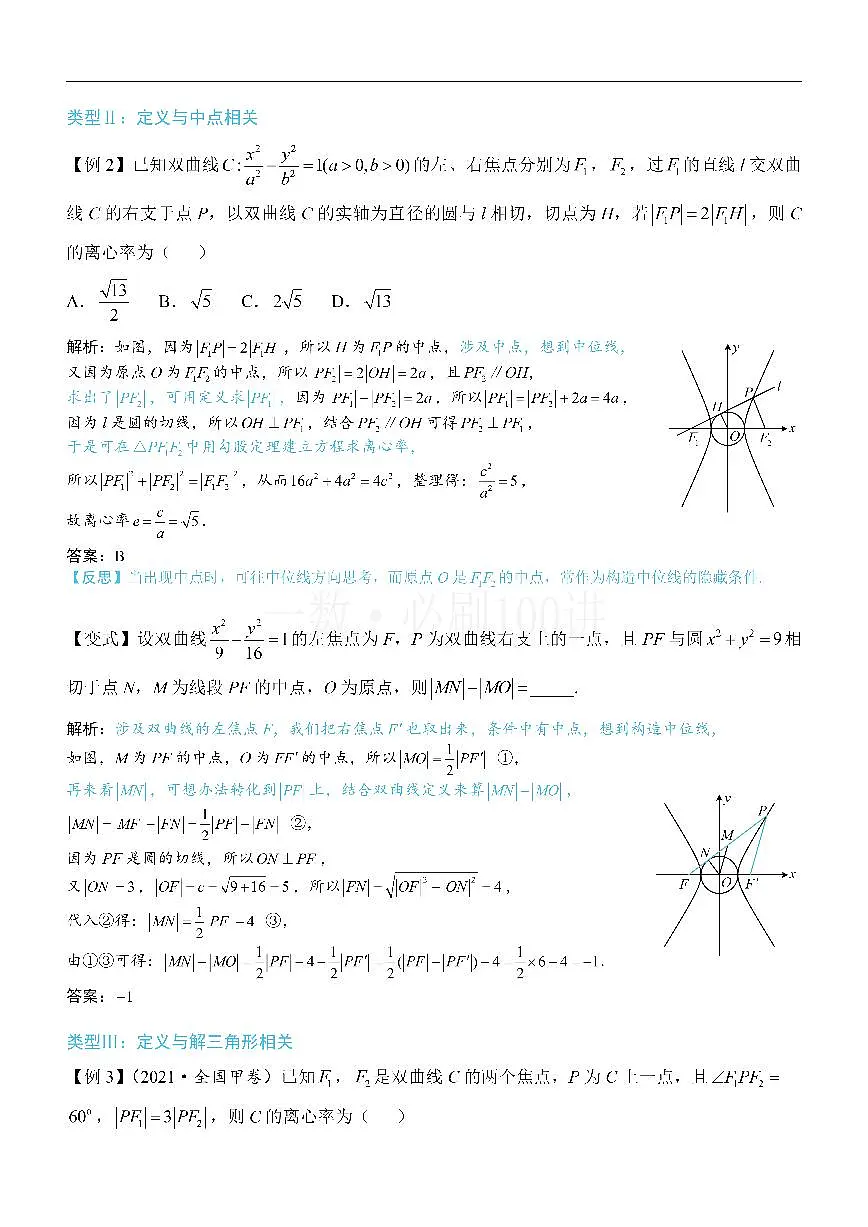 类型Ⅱ：定义与中点相关
【例 2】已知双曲线C:x²/a²−y²/b²=1(a>0,b>0)的左、右焦点分别为F₁，F₂，过F₁的直线 l 交双曲
线 C 的右支于点 P，以双曲线 C 的实轴为直径的圆与 l 相切，切点为 H，若|F₁P|=2|F₁H|，则 C
的离心率为（ ）
A．√13/2 B．√5 C．2√5 D．√13
解析：如图，因为|F₁P|=2|F₁H|，所以 H 为F₁P的中点，涉及中点，想到中位线，
又因为原点 O 为F₁F₂的中点，所以|PF₂|=2|OH|=2a，且PF₂∥OH，
求出了|PF₂|，可用定义求|PF₁|，因为|PF₁|−|PF₂|=2a，所以|PF₁|=|PF₂|+2a=4a，
因为 l 是圆的切线，所以OH⊥PF₁，结合PF₂∥OH可得PF₂⊥PF₁，
于是可在△PF₁F₂中用勾股定理建立方程求离心率，
所以|PF₁|²+|PF₂|²=|F₁F₂|²，从而16a²+4a²=4c²，整理得：c²/a²=5，
故离心率e=c/a=√5．
答案：B
【反思】当出现中点时，可往中位线方向思考，而原点 O 是F₁F₂的中点，常作为构造中位线的隐藏条件．
y
l
P
H
F₁
O
F₂
x
一数·必刷100讲
【变式】设双曲线x²/9−y²/16=1的左焦点为 F，P 为双曲线右支上的一点，且 PF 与圆x²+y²=9相
切于点 N，M 为线段 PF 的中点，O 为原点，则|MN|−|MO|=_____．
解析：涉及双曲线的左焦点 F，我们把右焦点F′也取出来，条件中有中点，想到构造中位线，
如图，M 为 PF 的中点，O 为FF′的中点，所以|MO|=1/2|PF′| ①，
再来看|MN|，可想办法转化到|PF|上，结合双曲线定义来算|MN|−|MO|，
|MN|=|MF|−|FN|=1/2|PF|−|FN| ②，
因为 PF 是圆的切线，所以ON⊥PF，
又|ON|=3，|OF|=c=√9+16=5，所以|FN|=√|OF|²−|ON|²=4，
代入②得：|MN|=1/2|PF|−4 ③，
由①③可得：|MN|−|MO|=1/2|PF|−4−1/2|PF′|=1/2(|PF|−|PF′|)−4=1/2×6−4=−1．
答案：−1
y
P
M
N
F
O
F′
x
类型Ⅲ：定义与解三角形相关
【例 3】（2021·全国甲卷）已知F₁，F₂是双曲线 C 的两个焦点，P 为 C 上一点，且∠F₁PF₂=
60⁰，|PF₁|=3|PF₂|，则 C 的离心率为（ ）